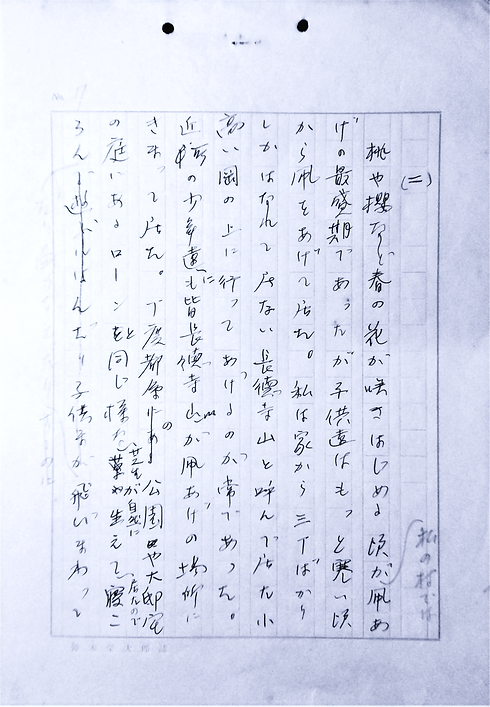 (二)
桃や櫻など春の花が咲きはじめる頃が凧あ
私の村では
げの最盛期であったが子供達はもっと寒い頃
から凧をあげて居た。私は家から三丁ばかり
しかはなれて居ない長德寺山と呼んで居た小
高い岡の上に行ってあげるのが常であった。
近郷の少年達も皆長德寺山が凧あげの場所に
きまって居た。丁度都会にある公園や大邸宅
の庭にあるローンと同じ様な芝生が自然に生えて居たので寝こ
ろんだり子供等が飛びまわって